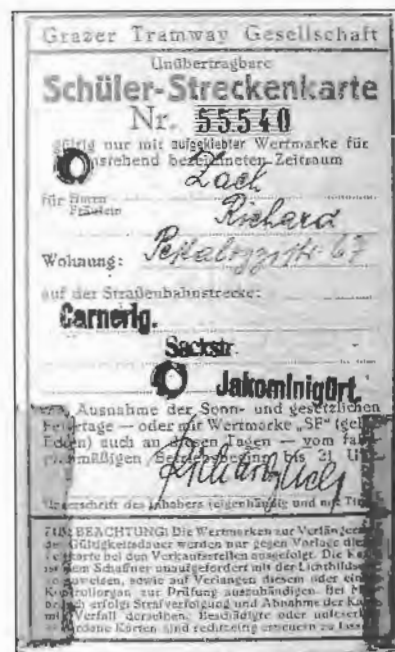 Grazer Tramway Gesellschaft
Unübertragbare
Schüler-Streckenkarte
Nr. 55540
gültig nur mit aufgeklebter Wertmarke für
bezeichneten Zeitraum
Zach
für Herrn
Fräulein
Richard
Wohnung: Pestalozzistr. 67
auf der Straßenbahnstrecke:
Carnerig.
Sackstr.
Jakominigürt.
Ausnahme der Sonn- und gesetzlichen
Feiertage — oder mit Wertmarke „SF“
auch an diesen Tagen — vom
Betriebsbeginn bis 21
Richard Zach
Unterschrift des Inhabers (eigenhändig und mit
BEACHTUNG! Die Wertmarken zur
der Gültigkeitsdauer werden nur gegen Vorlage
bei den Verkaufsstellen ausgefolgt. Die
dem Schaffner unaufgefordert mit der
sowie auf Verlangen diesem oder
zur Prüfung auszuhändigen. Bei
erfolgt Strafverfolgung und Abnahme der
Verfall derselben. Beschädigte oder
Karten sind rechtzeitig erneuern zu